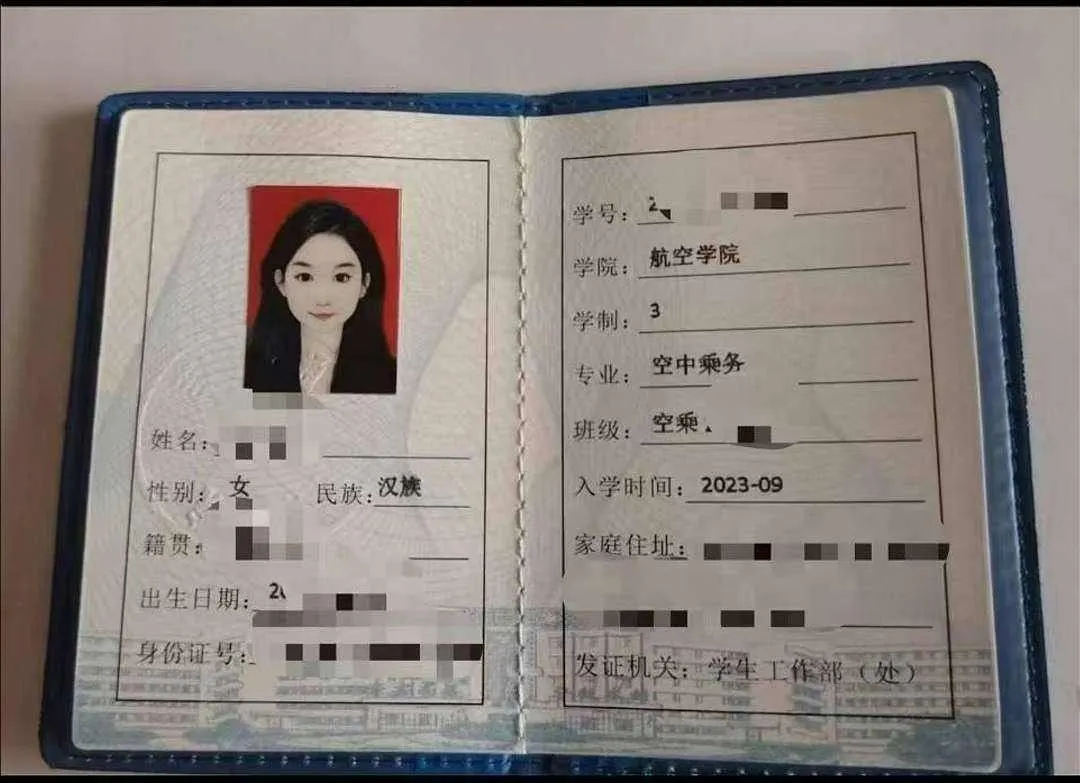 姓名:
性别: 女 民族: 汉族
籍贯:
出生日期: 20
身份证号:
学号: 2
学院: 航空学院
学制: 3
专业: 空中乘务
班级: 空乘
入学时间: 2023-09
家庭住址:
发证机关: 学生工作部（处）